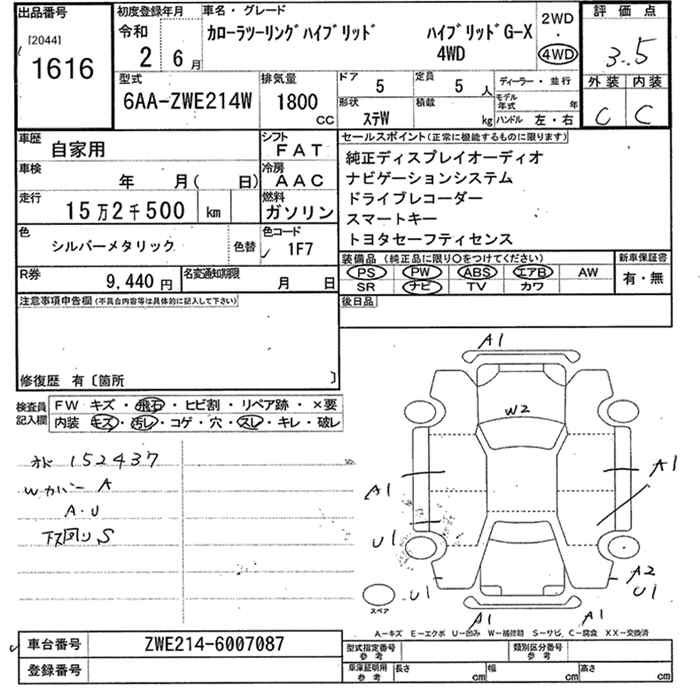 出品番号
[2044]
1616
初度登録年月
令和
2 6月
車名・グレード
カローラツーリングハイブリッド ハイブリッドG-X
4WD
2WD
・
4WD
評価点
3.5
外装 内装
C C
型式
6AA-ZWE214W
排気量
1800
CC
ドア 5
定員 5 人
形状 ステW
積載 kg
ディーラー・並行
モデル年式 年
ハンドル 左・右
車歴 自家用
シフト FAT
車検 年 月( 日)
冷房 AAC
走行 15万2千500 km
燃料 ガソリン
色 シルバーメタリック 色替
色コード 1F7
R券 9,440円
名変通知期限 月 日
セールスポイント(正常に機能するものに限ります)
純正ディスプレイオーディオ
ナビゲーションシステム
ドライブレコーダー
スマートキー
トヨタセーフティセンス
装備品(純正品に限り○をつけてください)
PS PW ABS エアB AW
SR ナビ TV カワ
新車保証書
有・無
後日品
注意事項申告欄(不具合内容等は具体的に記入して下さい)
修復歴 有〔箇所 〕
検査員記入欄
FW キズ・飛石・ヒビ割・リペア跡・×要
内装 キズ・汚レ・コゲ・穴・スレ・キレ・破レ
152437
Wカバー A
A・U
下回りS
A1
W2
A1
A1
U1
U1
A2
U1
A1
A1
スペア
A―キズ E―エクボ U―凹み W―補修跡 S―サビ C―腐食 XX―交換済
車台番号 ZWE214-6007087
登録番号
型式指定番号 参考
類別区分番号 参考
車庫証明用 参考
長さ cm
幅 cm
高さ cm